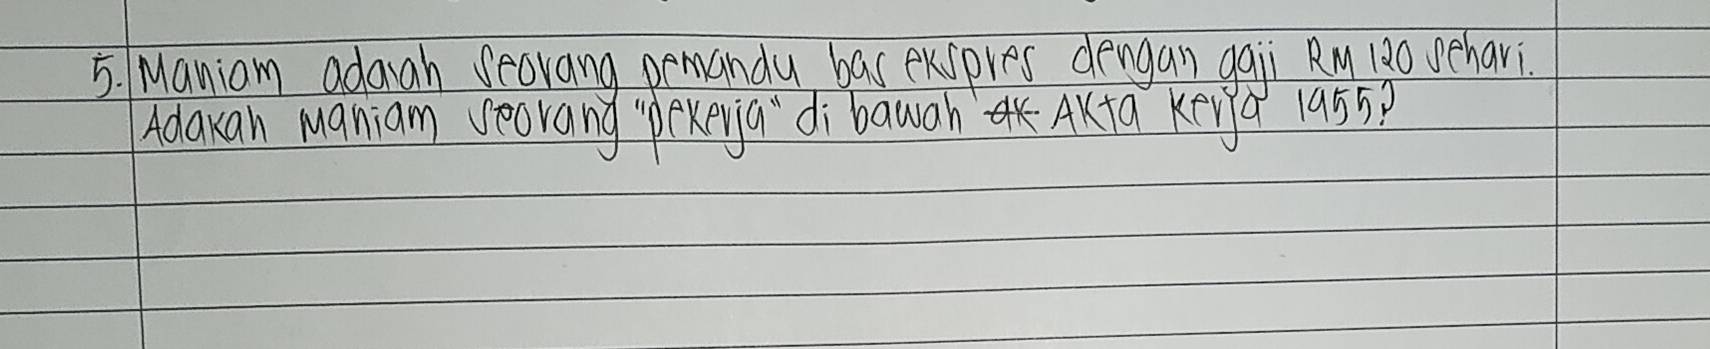 5. Maniam adalah seorang pemandu bas ekspres dengan gaji RM 120 sehari.
Adakah Maniam seorang "pekerja" di bawah ak Akta Kerja 1955?